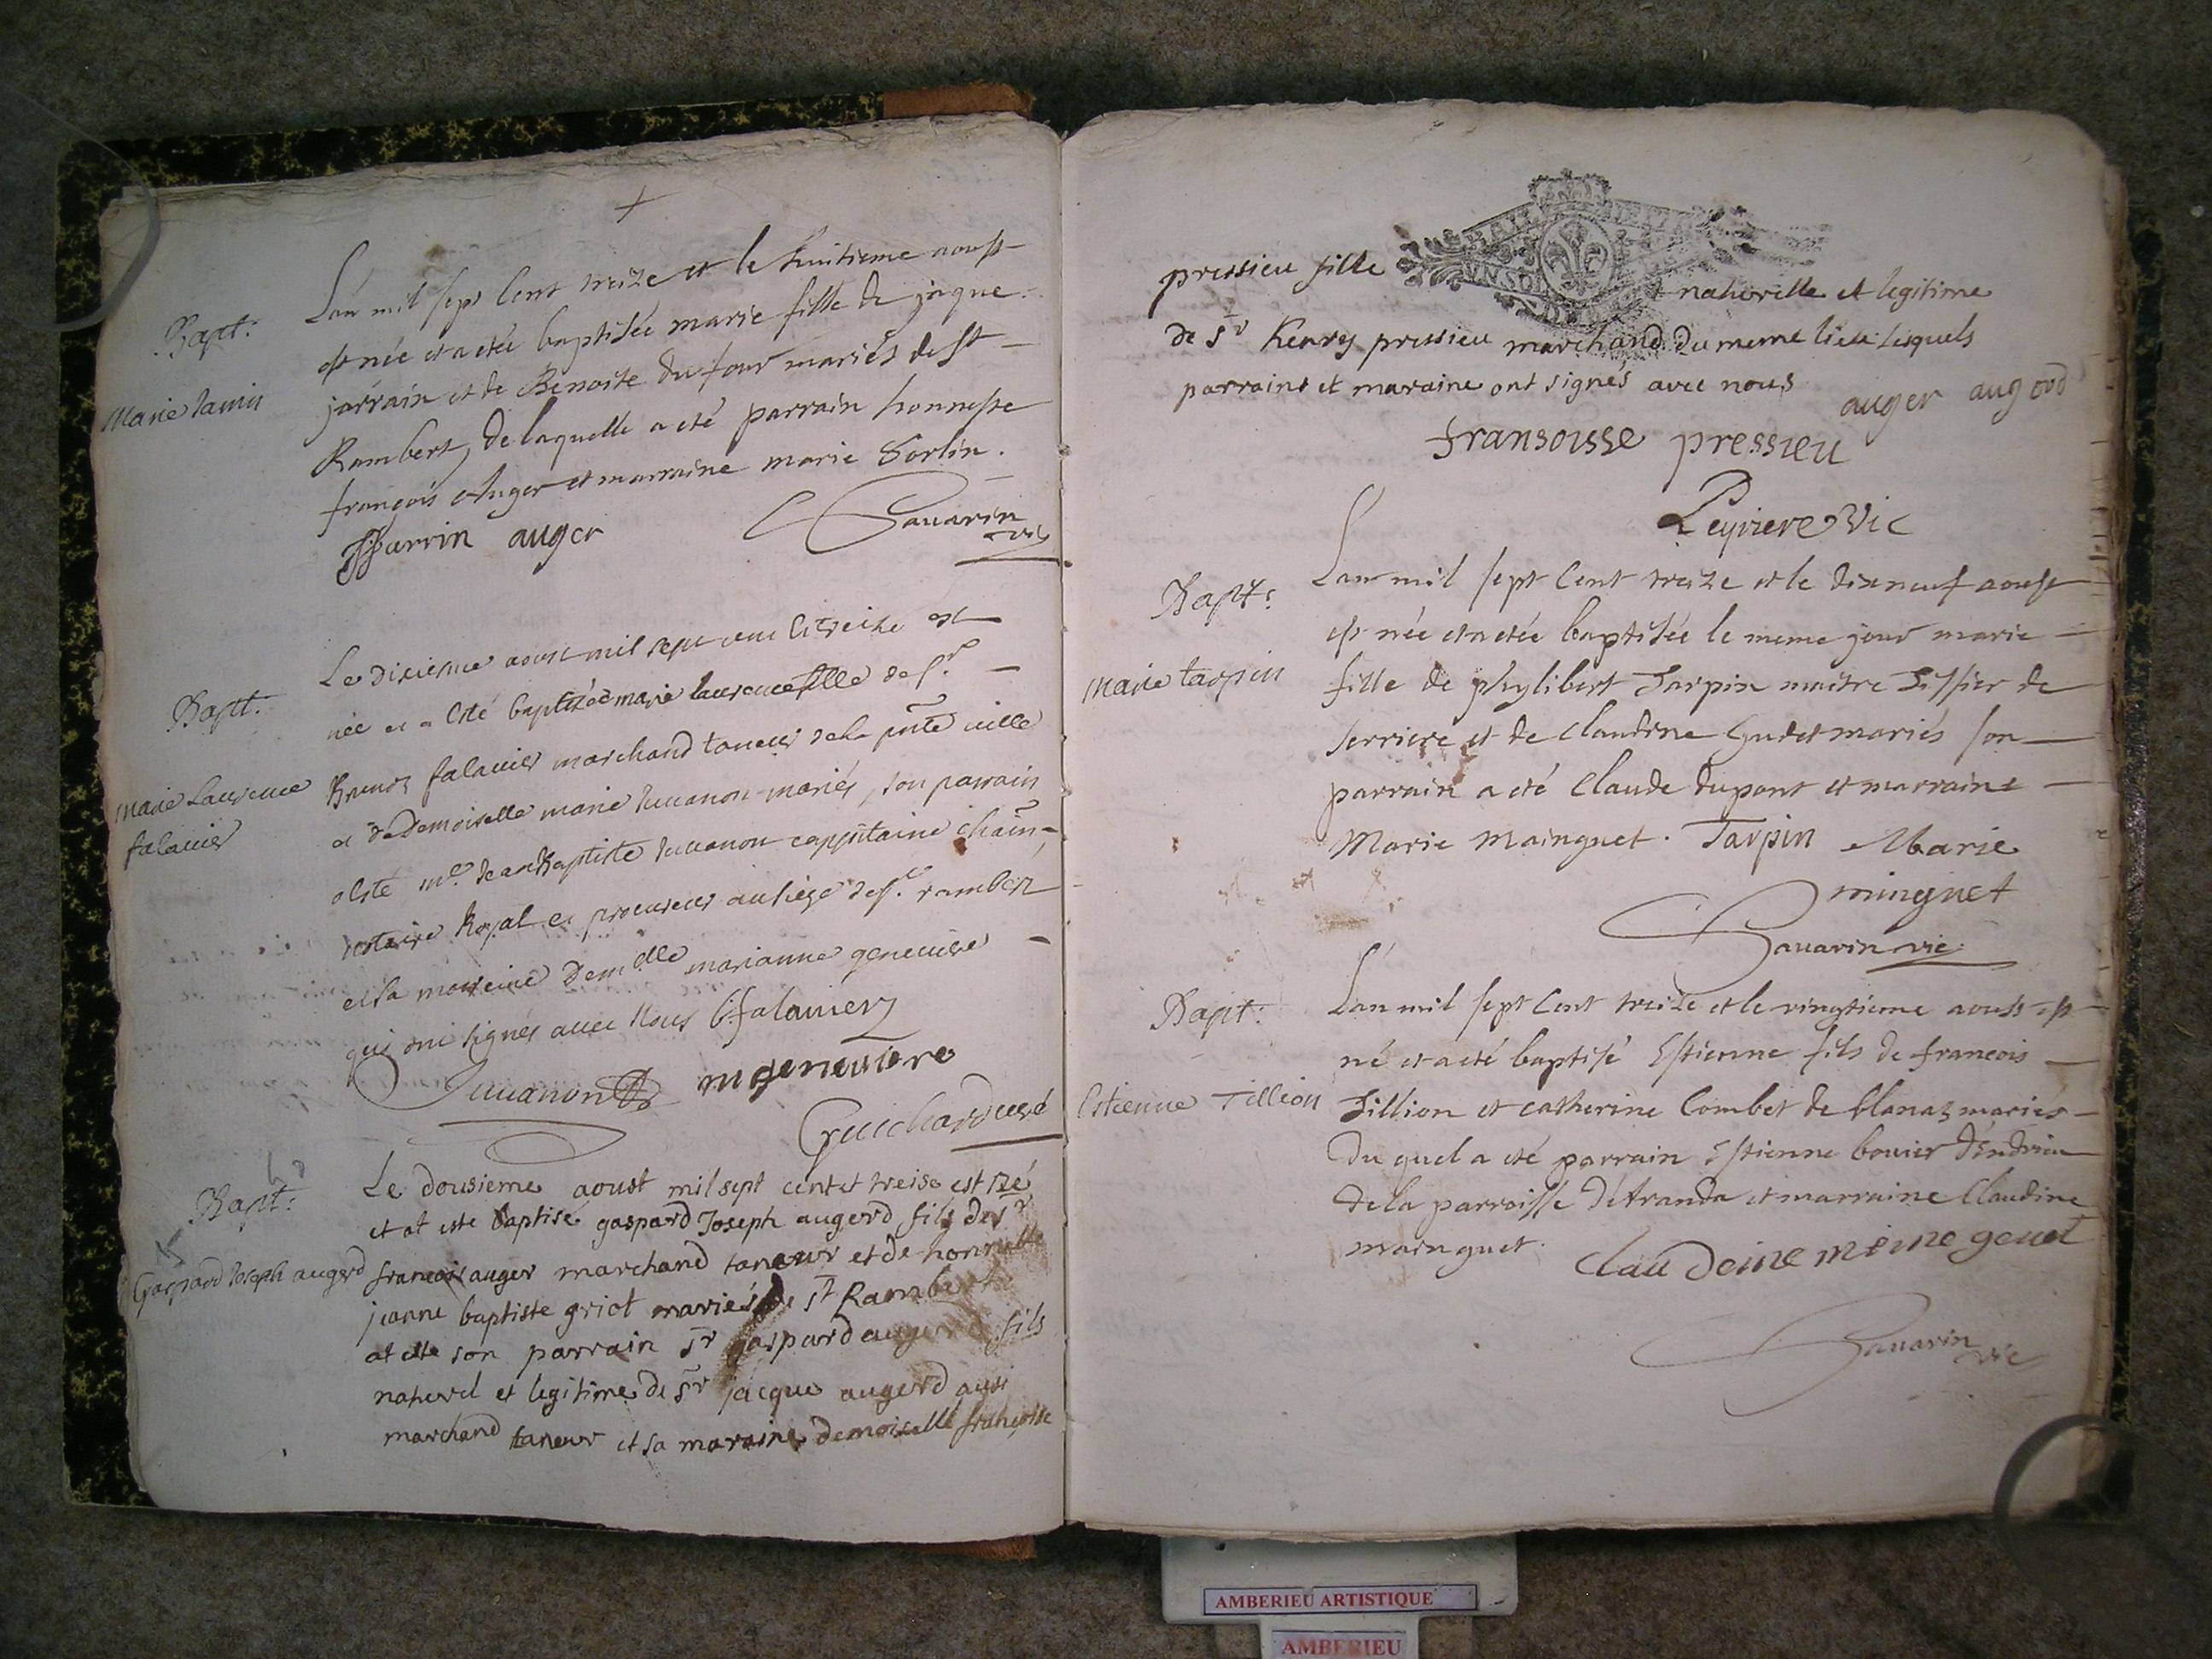 Bapt:
Marie Jarrin
L'an mil sept cent treize et le huitieme aoust
est née et a eté baptisée marie fille de jaque
jarrain et de Benoite du four mariés de St
Rambert, de laquelle a eté parrain honneste
françois Auger et marraine marie Sorlin.
Jarrin auger Sauarin vic
Bapt:
Marie Laurence
falauier
Le dixieme aoust mil sept cent et treize est
née et a esté baptizée marie laurence fille de sr.
falauier marchand taneur de la pnte ville
et de Demoiselle marie Juuanon mariés, son parrain
a esté me. Jean Baptiste Juuanon cappitaine
notaire Royal et procureur au siege de st. rambert
et sa mareine Demelle marianne geneuiere
qui ont signés auec Nous falauier
Juuanon m geneuiere
Guichard curé
Bapt:
Gaspard Joseph augerd
Le dousieme aoust mil sept cent et treise est né
et at este baptisé gaspard Joseph augerd fils de sr
francois auger marchand taneur et de honneste
jeanne baptiste griot mariés de st Rambert
at este son parrain sr gaspard augerd fils
naturel et legitime de sr jacque augerd aussi
marchand taneur et sa maraine demoiselle françoise
pressieu fille naturelle et legitime
de sr henry pressieu marchand du meme lieu lesquels
parraint et maraine ont signés avec nous
auger augerd
fransoisse pressieu
Peyriere Vic
Bapt:
Marie tarpin
L'an mil sept cent treize et le dixneuf aoust
est née et a eté baptisée le meme jour marie
fille de phylibert Tarpin maitre Tissier de
serriere et de claudine Gudet mariés son
parrain a eté Claude dupont et marraine
Marie Mainguet. Tarpin Marie
minguet
Sauarin vic
Bapt:
Estienne Tillion
L'an mil sept cent treize et le vingtieme aoust est
né et a eté baptisé Estienne fils de francois
Tillion et catherine Combet de blanaz mariés
du quel a eté parrain Estienne bouier d'Indrieu
de la parroisse d'Aranda et marraine Claudine
mainguet. Clau Deine meine geuet
Sauarin vic
AMBERIEU ARTISTIQUE
AMBERIEU